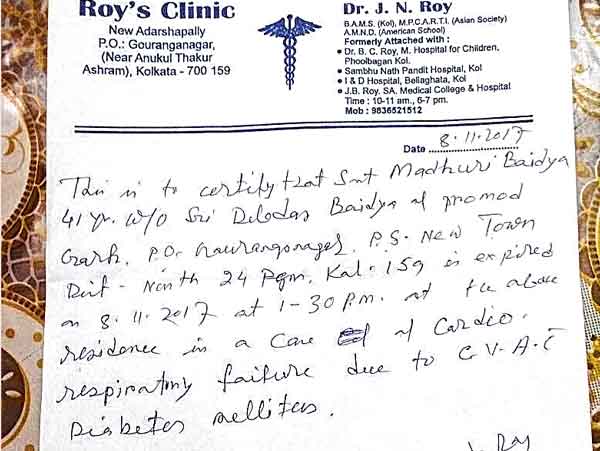 Roy's Clinic
New Adarshapally
P.O.: Gouranganagar,
(Near Anukul Thakur
Ashram), Kolkata - 700 159
Dr. J. N. Roy
B.A.M.S. (Kol), M.P.C.A.R.T.I. (Asian Society)
A.M.N.D. (American School)
Formerly Attached with :
• Dr. B. C. Roy, M. Hospital for Children,
Phoolbagan Kol.
• Sambhu Nath Pandit Hospital, Kol
• I & D Hospital, Bellaghata, Kol
• J.B. Roy. SA. Medical College & Hospital
Time : 10-11 am., 6-7 pm.
Mob : 9836521512
Date 8.11.2017
This is to certify that Smt Madhuri Baidya
41 yr. w/o Sri Debdas Baidya of promod
Garh. P.O. Gouranganagar. P.S. New Town
Dist - North 24 Pgm. Kol. 159 is expired
on 8.11.2017 at 1-30 P.m. at the above
residence in a case of Cardio.
respiratory failure due to C.V.A. C
Diabetes mellitus.
Roy